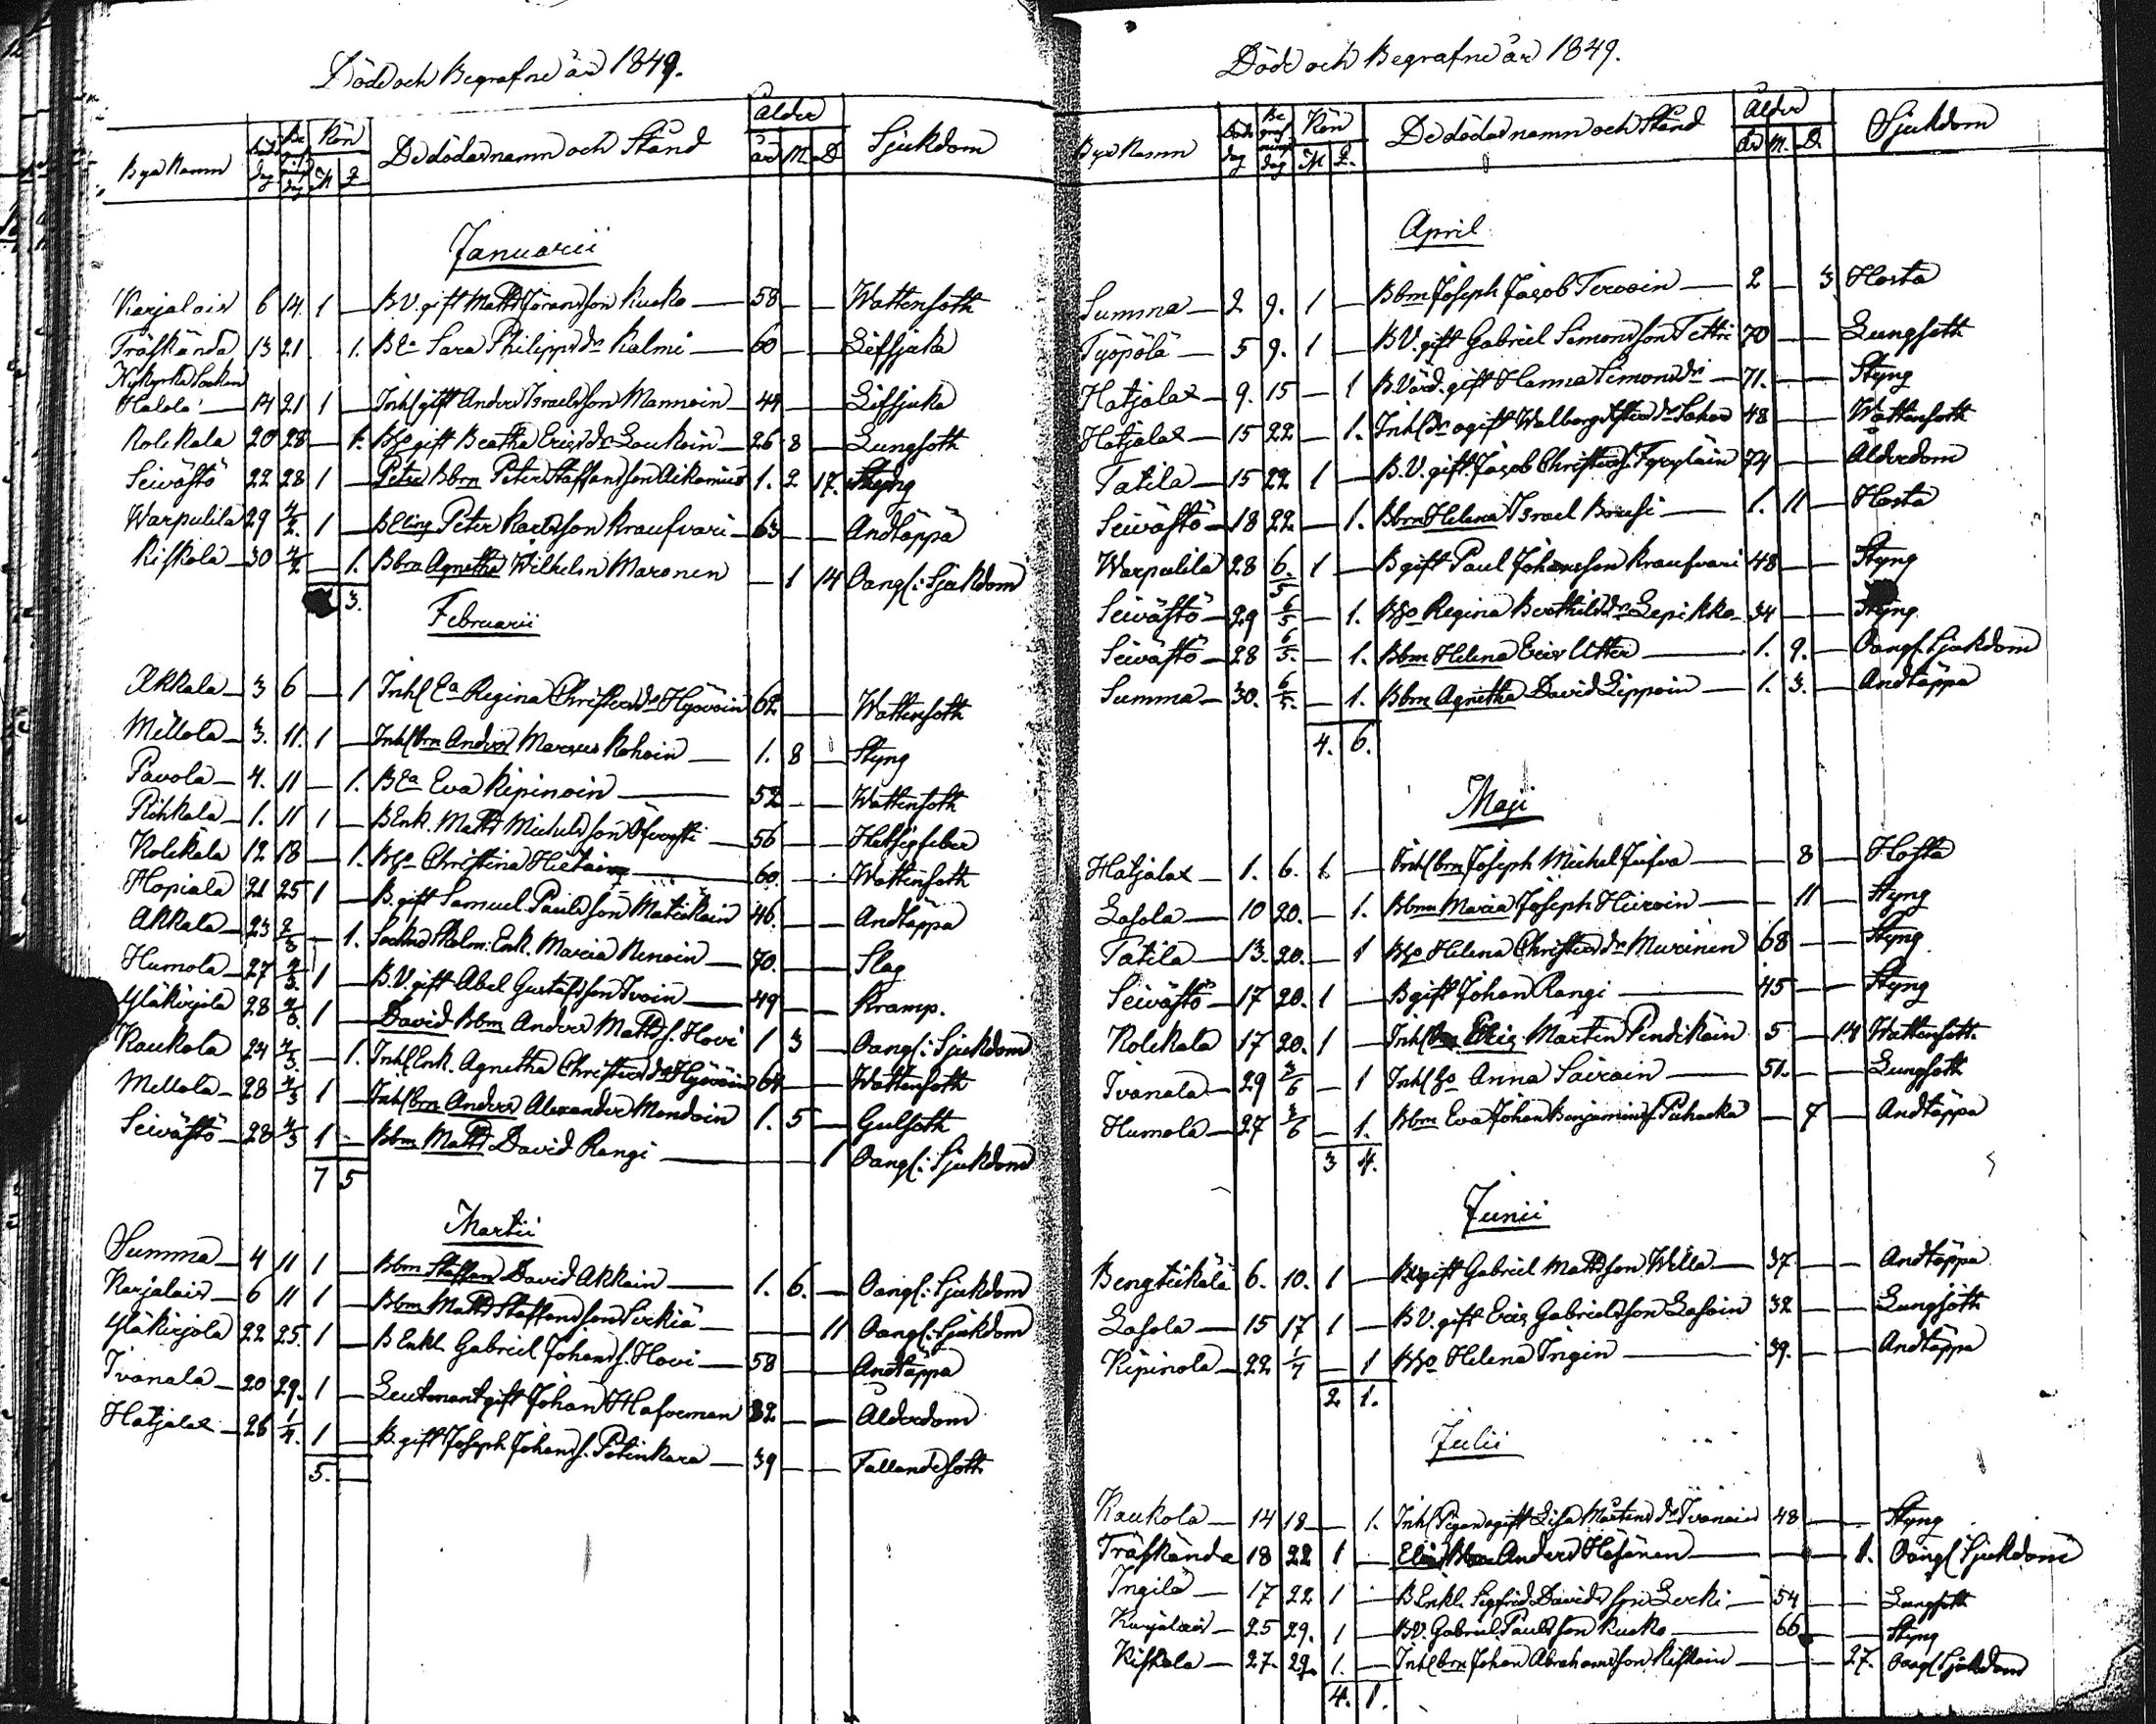 Döde och Begrafne år 1849.
Bya Namn Döds dag Be grafnings dag Kön M Q De dödas namn och Stånd Ålder år M. D Sjukdom
Januarii
Karjalais 6 14. 1 — B.V. gift Matts Joransson Kucko — 58 — — Wattensoth
Träskända 13 21 1. B Ea Sara Philippsdr Kalmi — 60 — — Lifsjuka
Nykyrka Socken
Halola — 14 21 1 — Inhs gift Anders Israelsson Mannoin — 44 — — Lifsjuka
Kolckala 20 28 — 1. B Hso gift Beatha Ericsdr Laukain — 26 8 — Lungsoth
Seivästö 22 28 1 — Petter Bbrn Peter Staffansson Aikamus 1. 2 17. Styng
Warpulila 29 4/2. 1 — B Peter Karlsson Kraufvari — 63 — — Andtäppa
Kiskola — 30 4/2 — 1. Bbrn Agnetha Wilhelm Maronen — 1 14 Oangf: Sjukdom
3.
Februarii
Akkala — 3 6 — 1 Inhs Ea Regina Christersdr Hyövöin 62 — — Wattensoth
Mellola — 3. 11. 1 — Inhs brn Anders Marcus Kohoin — 1. 8 — Styng
Pavola — 4. 11 — 1. B Ea Eva Kipinoin — 52 — — Wattensoth
Rihkala — 1. 11 1 — B Enk. Matts Michelsson — 56 — — Hetsigfeber
Kolckala 12 18 — 1. B Hso Christina Hietain — 60. — — Wattensoth
Hopiala 21 25 1 — B. gift Samuel Paulsson Mätiskain 46. — — Andtäppa
Akkala — 23 2/3 — 1. Sockne Skolm: Enk. Maria Nenoin — 70. — — Slag
Humola — 27 4/3. 1 — B.V. gift Abel Gustafsson Ivoin — 49 — — Kramp.
Yläkirjola 28 4/3. 1 — David Bbrn Anders Matts s. Hovi 1 3 — Oangf: Sjukdom
Kaukola 24 4/3. — 1. Inhs Enk. Agnetha Christersdr Hyövöin 64 — — Wattensoth
Mellola — 28 4/3 1 — Inhs brn Anders Alexander Mondoin 1. 5 — Gulsoth
Seivästö — 28 4/3 1 — Bbrn Matts David Rangi — 1 Oangf: Sjukdom
7 5
Martii
Summa — 4 11 1 — Bbrn Staffan David Akkain — 1. 6. — Oangf: Sjukdom
Karjalais — 6 11 1 — Bbrn Matts Staffansson Sirkiä — — — 11 Oangf: Sjukdom
Yläkirjola 22 25. 1 — B Enkl. Gabriel Johans s. Hovi — 58 — — Andtäppa
Ivanala — 20 29. 1 — Leutenant gift Johan Haforman 82 — — Ålderdom
Hatjalax — 26 1/4. 1 — B. gift Joseph Johans s. Potinkara — 39 — — Fallandesoth
5. —
Döde och Begrafne år 1849.
Bya Namn Döds dag Be grafnings dag Kön M Q. De dödas namn och Stånd Ålder år M. D. Sjukdom
April
Summa — 2 9. 1 — Bbrn Joseph Jacob Tervoin — 2 — 3. Hosta
Työpölä — 5 9. 1 — B.V. gift Gabriel Simonsson Tettri 70 — — Lungsoth
Hatjalax — 9. 15 — 1 B. Värd. gift Hanna Simonsdr — 71. — — Styng
Hatjalax — 15 22 — 1. Inhs dr ogift Walborg 48 — — Wattensoth
Tatila — 15 22 1 — B.V. gift Jacob Christers s. Tyryläin 74 — — Ålderdom
Seivästö — 18 22 — 1. Bbrn Helena Israel Bousi — 1. 11 — Hosta
Warpulila 28 6./5 1 — B gift Paul Johansson Kraufvari 48 — — Styng
Seivästö — 29 6/5 — 1. B Hso Regina Berthilsdr Lepikko — 34 — — Styng
Seivästö — 28 6/5. — 1. Bbrn Helena Eric Utter — 1. 9. — Oangf. Sjukdom
Summa — 30. 6/5. — 1. Bbrn Agnetha David Lippoin — 1. 3. — Andtäppa
4. 6.
Maji
Hatjalax — 1. 6. 1. — Inhs brn Joseph Michel Jufva — 8 — Hosta
Lasola — 10 20. — 1. Bbrn Maria Joseph Hiiroin — 11 — Styng
Tatila — 13. 20. — 1 B Hso Helena Christersdr Murinen 68 — — Styng
Seivästö — 17 20. 1 — B gift Johan Rangi — 45 — — Styng
Kolckala 17 20. 1 — Inhs brn Eric Martin Pendikäin 5 — 14 Wattensoth.
Ivanala — 29 3/6 — 1 Inhs Hso Anna Sairain — 51. — — Lungsoth
Humola — 27 3/6 — 1. Bbrn Eva Johan Benjamins s. Puhacka — 7 — Andtäppa
3 4.
Junii
Bengtickälä 6. 10. 1 — B gift Gabriel Mattsson Willa — 37 — — Andtäppa
Lasola — 15 17 1 — B.V. gift Eric Gabrielsson Lasoin 32 — — Lungsoth
Kipinola — 22 1/7 — 1 B Hso Helena Ingin — 39. — — Andtäppa
2 1.
Julii
Kaukola — 14 18 — 1. Inhs Pigan ogift Lisa Mårtensdr Ivanain 48 — — Styng
Träskända 18 22 1 — Anders Häsänen — — — 1. Oangf Sjukdom
Ingilä — 17 22 1 — B Enkl. Sigfrid Davidsson Lerki — 54 — — Lungsoth
Karjalais — 25 29. 1 — B.V. Gabriel Paulsson Kucko — 66 — — Styng
Kiskola — 27. 29. 1. — Inhs brn Johan Abrahamsson Kiskoin — — — 27. Oangf Sjukdom
4. 1.